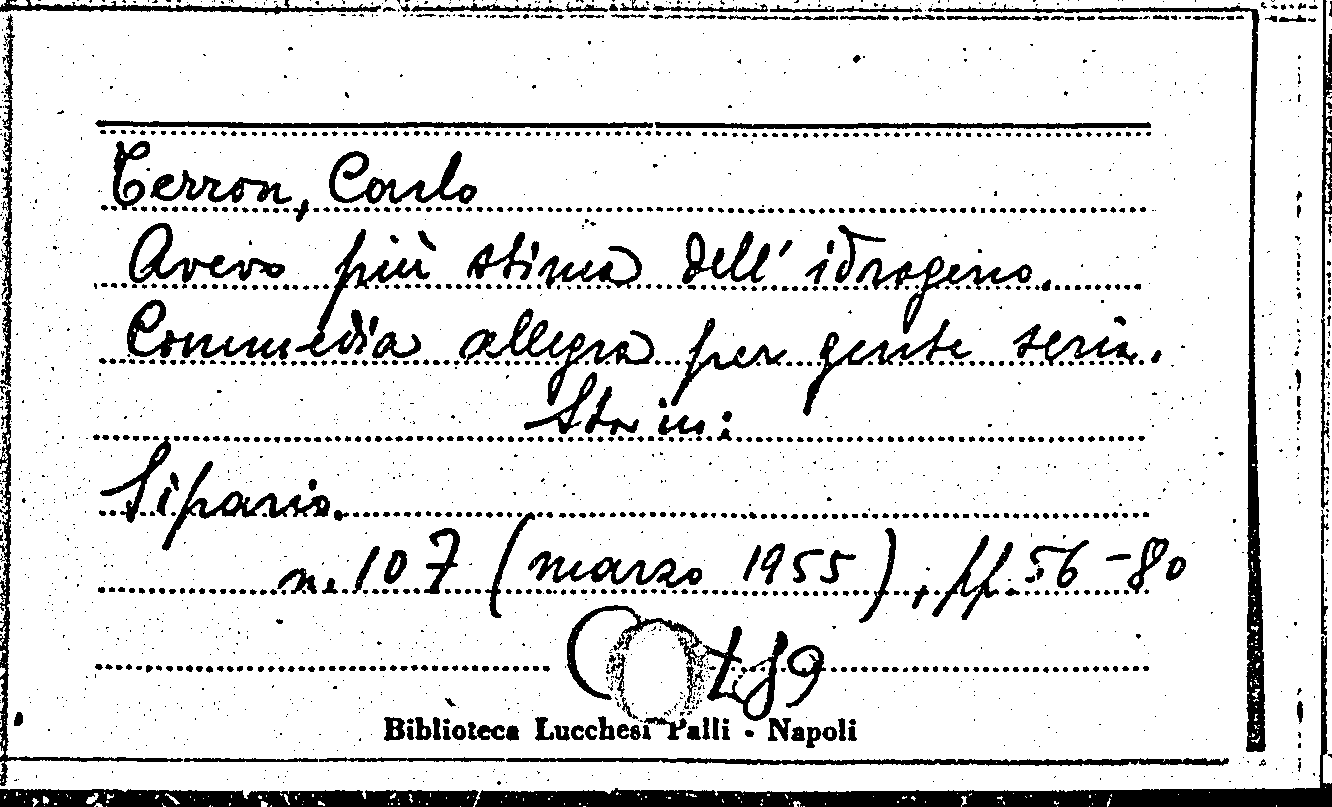 Terron, Carlo
Avevo più stima dell'idrogeno.
Commedia allegra per gente seria.
Sta in:
Sipario.
n. 107 (marzo 1955), pp. 56-80
Biblioteca Lucchesi Palli - Napoli